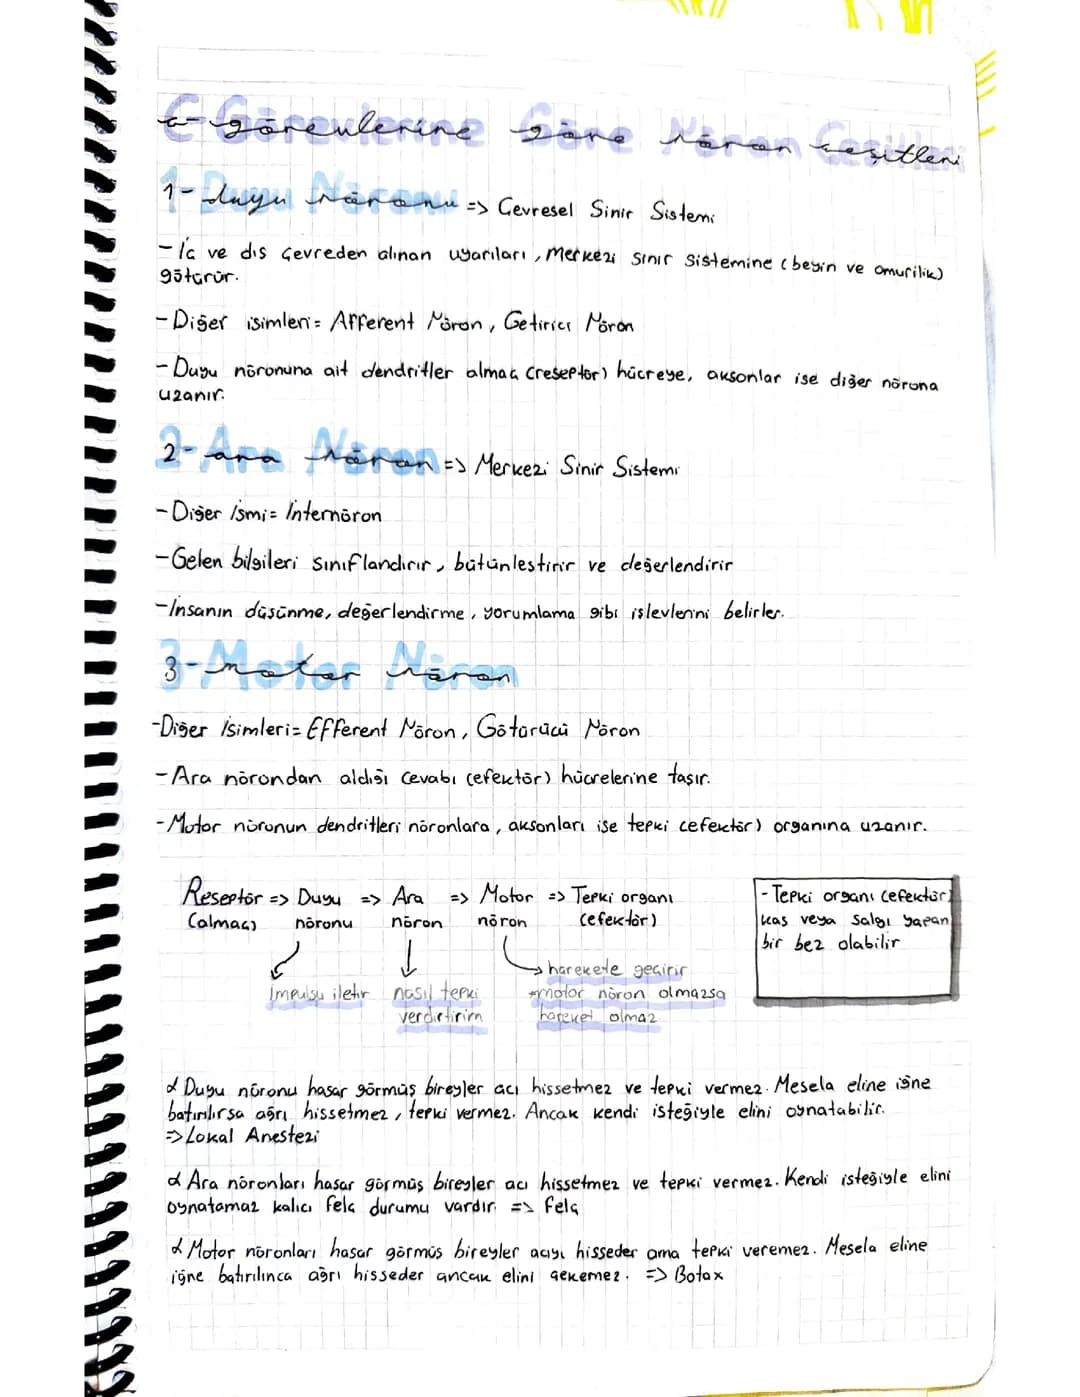 C-Görevlerine Göre Nöron Çeşitleri
1-Duyu Nöronu => Çevresel Sinir Sistemi
-İç ve dış çevreden alınan uyarıları, Merkezi sinir sistemine (beyin ve omurilik)
götürür.
-Diğer isimleri= Afferent Nöron, Getirici Nöron
-Duyu nöronuna ait dendritler almaç (reseptör) hücreye, aksonlar ise diğer nörona
uzanır.
2-Ara Nöron => Merkezi Sinir Sistemi
-Diğer İsmi= İnternöron
-Gelen bilgileri sınıflandırır, bütünleştirir ve değerlendirir
-İnsanın düşünme, değerlendirme, yorumlama gibi işlevlerini belirler.
3-Motor Nöron
-Diğer İsimleri= Efferent Nöron, Götürücü Nöron
-Ara nörondan aldığı cevabı (efektör) hücrelerine taşır.
-Motor nöronun dendritleri nöronlara, aksonları ise tepki (efektör) organına uzanır.
Reseptör => Duyu => Ara => Motor => Tepki organı
(almaç) nöronu nöron nöron (efektör)
İmpulsu iletir
nasıl tepki
verdirtirim
harekete geçirir
*motor nöron olmazsa
hareket olmaz
-Tepki organı (efektör)
kas veya salgı yapan
bir bez olabilir
α Duyu nöronu hasar görmüş bireyler acı hissetmez ve tepki vermez. Mesela eline iğne
batırılırsa ağrı hissetmez, tepki vermez. Ancak kendi isteğiyle elini oynatabilir.
=> Lokal Anestezi
α Ara nöronları hasar görmüş bireyler acı hissetmez ve tepki vermez. Kendi isteğiyle elini
oynatamaz kalıcı felç durumu vardır. => Felç
α Motor nöronları hasar görmüş bireyler acıyı hisseder ama tepki veremez. Mesela eline
iğne batırılınca ağrı hisseder ancak elini çekemez. => Botox